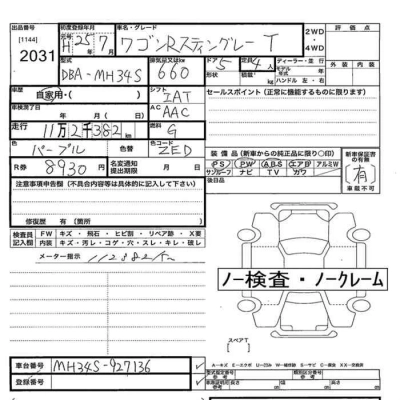 出品番号
[1144]
2031
初度登録年月
H25年7月
車名・グレード
ワゴンRスティングレー T
2WD
・
4WD
評価点
外装
内装
型式
DBA-MH34S
排気量cc
660
ドア
5
定員
4人
ディーラー・並行
モデル年式
ハンドル 左・右
車歴
自家用・
シフト
IAT
車検満了日
年 月 日
AC
AAC
セールスポイント (正常に機能するものに限ります)
走行
11万2千382km
燃料
G
色
パープル
色替
色コード
ZED
R券
8930円
名変通知
提出期限
装備品 (新車からの純正品に限り〇印)
PS PW ABS エアB アルミW
サンルーフ ナビ TV カワ
新車保証書
の有無
有
車載不可
注意事項申告欄 (不具合内容等は具体的に記入して下さい)
修復歴 有 (箇所)
検査員
記入欄
FW キズ・飛石・ヒビ割・リペア跡・X要
内装 キズ・汚レ・コゲ・穴・スレ・キレ・破レ
メーター指示
112382km
ノー検査・ノークレーム
スペアT
車台番号
MH34S-927136
登録番号
A-キズ E-エクボ U-凹ミ W-補修跡 S-サビ C-腐食 XX-交換済
型式指定番号
類別区分番号
車両証明記載長さ
cm
幅
cm
高さ
cm